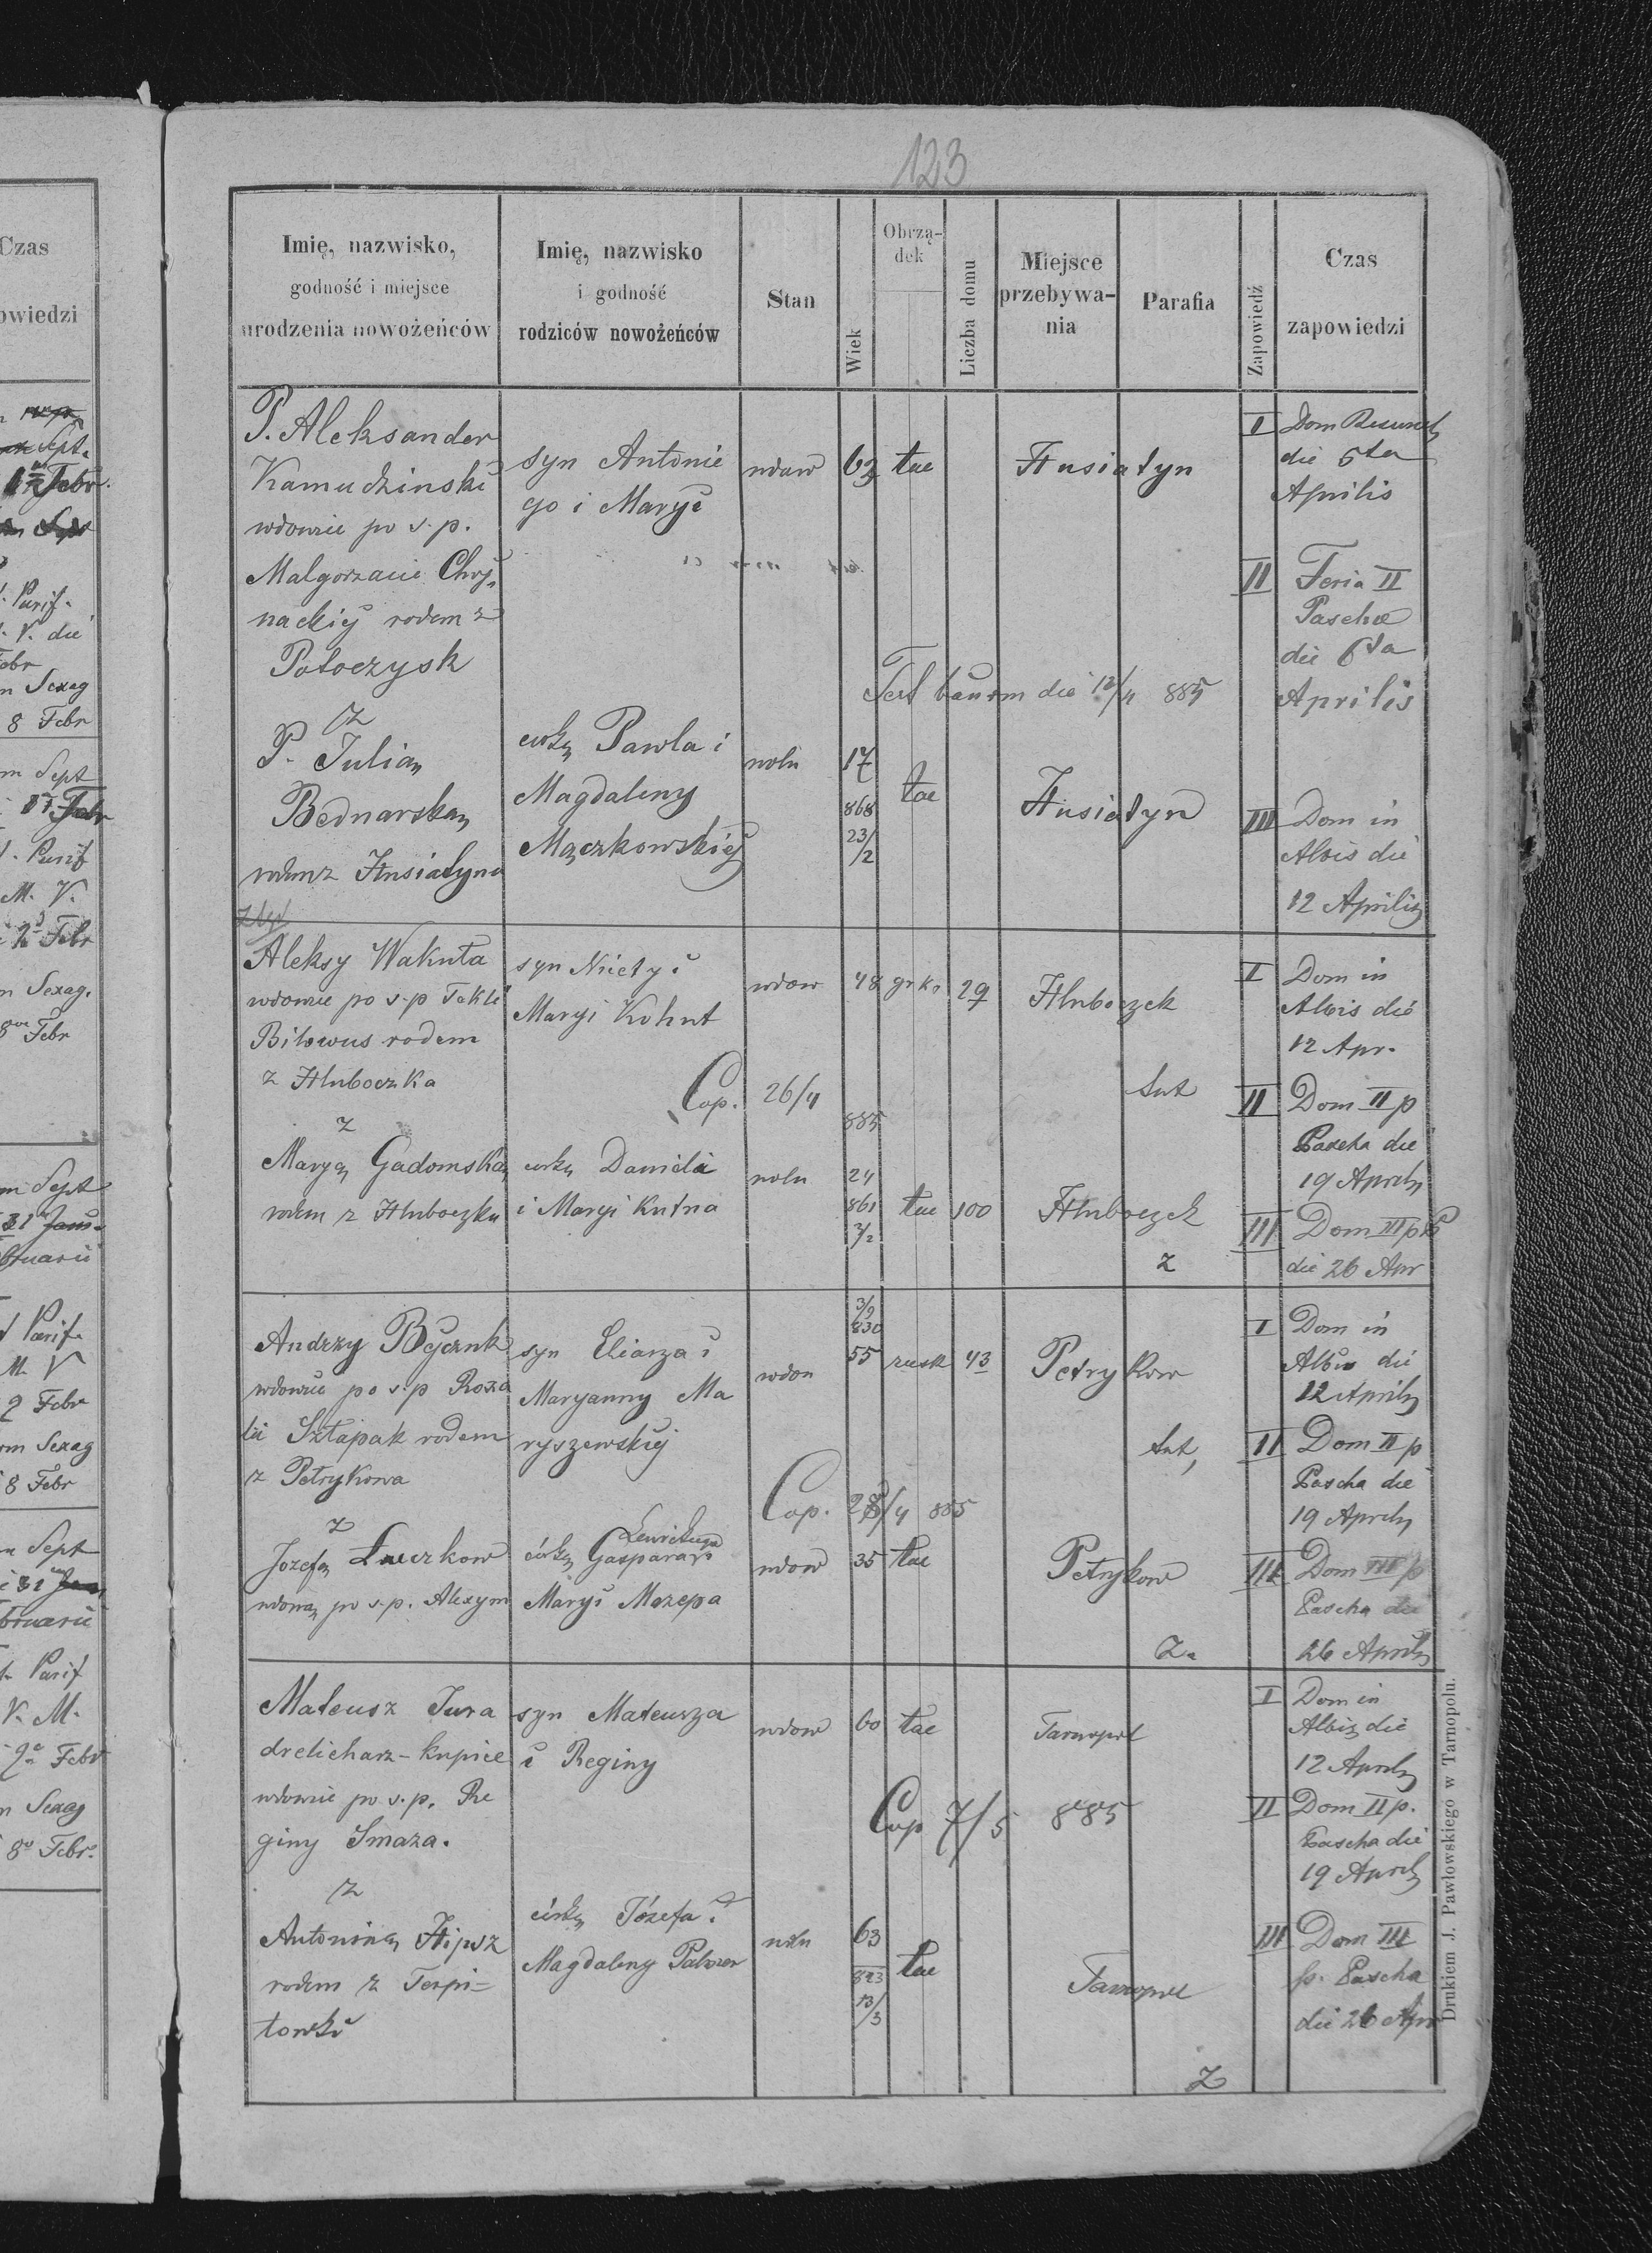 123
Imię, nazwisko,
godność i miejsce
urodzenia nowożeńców
Imię, nazwisko
i godność
rodziców nowożeńców
Stan
Wiek
Obrzą-
dek
Liczba domu
Miejsce
przebywa-
nia
Parafia
Zapowiedź
Czas
zapowiedzi
P. Aleksander
Kamudzinski
wdowie po s. p.
Malgorzacie Chry,
nackiej rodem z
Potoczysk
syn Antonie
go i Maryi
wdow
62
łac
Husiatyn
I Dom Resurect
die 5ta
Aprilis
II Feria II
Pascha
die 6ta
Aprilis
Test bannm die 12/4 885
z
P. Julią
Bednarską
rodem z Husiatyna
curką Pawla i
Magdaleny
Mączkowskiej
woln
17
868
23/2
łac
Husiatyn
III Dom in
Albis die
12 Aprilis
Aleksy Wakuta
wdowie po s.p Tekli
Bilowus rodem
z Hluboczka
syn Nicety i
Maryi Kohut
wdow
48
grk.
29
Hluboczek
I Dom in
Albis die
12 Apr.
Cop. 26/4
885
tut
II Dom II p
Pascha die
19 Aprilis
z
Maryą Gadomską
rodem z Hluboczka
curką Daniela
i Maryi Kutna
woln
24
861
2/2
łac
100
Hluboczek
z
III Dom III p P
die 26 Apr
Andrzy Byczuk
wdowie po s.p Roza
lii Sztapak rodem
z Petrykowa
syn Eliasza i
Maryanny Ma
ryszewskiej
wdow
3/9
830
55
rusk
43
Petrykow
I Dom in
Albis die
12 Aprilis
tut,
II Dom II p
Pascha die
19 Aprilis
Cop. 28/4 885
z
Jozefą Łuczkow
wdową po s.p. Alexym
córką Gaspara i
Maryi Mazepa
wdow
35
łac
Petrykow
z.
III Dom III p
Pascha die
26 Aprilis
Mateusz Jura
drelicharz - kupiec
wdowie po s.p. Re
giny Smaza.
syn Mateusza
i Reginy
wdow
60
łac
Tarnopol
I Dom in
Albis die
12 Aprilis
Cop 7/5 885
II Dom II p.
Pascha die
19 Aprilis
z
Antoniną Hipsz
rodem z Terpi-
lowki
córką Józefa i
Magdaleny
woln
63
823
13/3
łac
Tarnopol
z
III Dom III
p. Pascha
die 26 Apr
Drukiem J. Pawłowskiego w Tarnopolu.
Czas
owiedzi
m Sexag
8 Febr
m Sept
M. V.
m Sexag.
m Sept
M. V
2 Febr
m Sexag
8 Febr
n Sept
t. Purif
V. M.
n Sexag